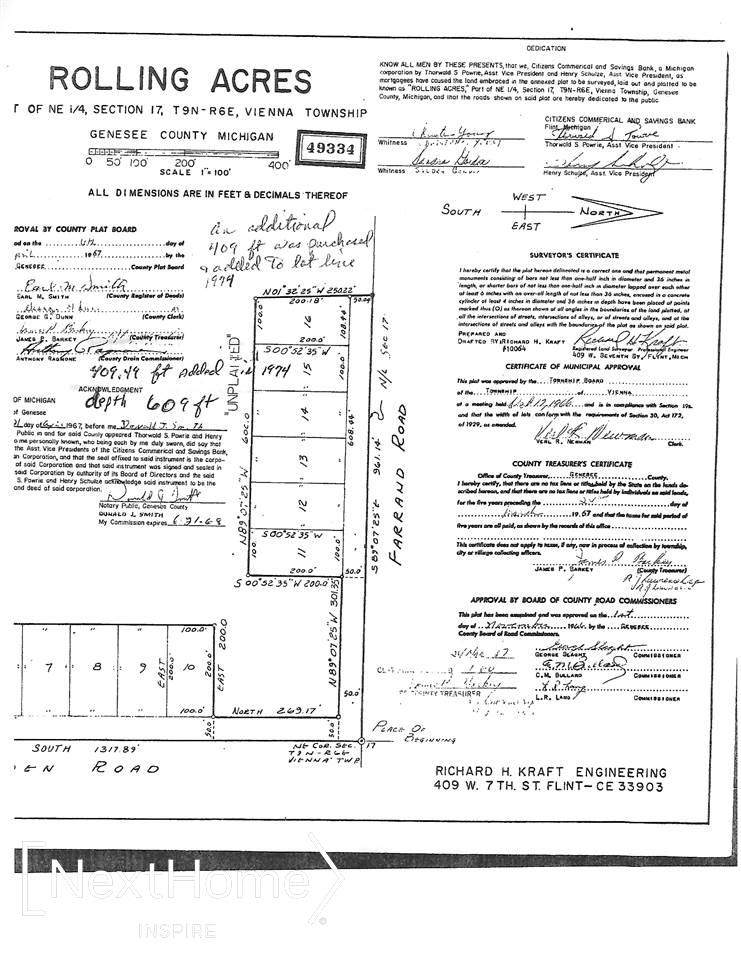 ROLLING ACRES
T OF NE 1/4, SECTION 17, T9N-R6E, VIENNA TOWNSHIP
GENESEE COUNTY MICHIGAN
0 50' 100' 200' 400'
SCALE 1"=100'
49334
ALL DIMENSIONS ARE IN FEET & DECIMALS THEREOF
ROVAL BY COUNTY PLAT BOARD
ed on the 6th day of
April 1967 by the
GENESEE County Plat Board
Earl M. Smith
EARL M. SMITH (County Register of Deeds)
GEORGE G. DUNN (County Clerk)
JAMES P. BARKEY (County Treasurer)
ANTHONY RAGNONE (County Drain Commissioner)
An additional
409 ft was purchased
& added to lot line
1974
409.49 ft added in 1974
depth 609 ft
ACKNOWLEDGMENT
OF MICHIGAN
of Genesee
day of 1967, before me, Donald J. Smith
Public in and for said County appeared Thorwald S. Powrie and Henry
o me personally known, who being each by me duly sworn, did say that
the Asst. Vice Presidents of the Citizens Commerical and Savings Bank,
an Corporation, and that the seal affixed to said instrument is the corpo-
of said Corporation and that said instrument was signed and sealed in
said Corporation by authority of its Board of Directors and the said
S. Powrie and Henry Schulze acknowledge said instrument to be the
and deed of said corporation.
Donald J. Smith
Notary Public, Genesee County
DONALD J. SMITH
My Commission expires 6-21-68
"UNPLATTED"
N01°32'25"W 250.22'
200.18'
50.04
100.
16
108.44'
200.0'
S 00°52'35"W
15
100.0'
14
13
12
S 00°52'35"W
11
100.
100.0'
200.0'
50.0'
S 00°52'35"W 200.0'
N89°07'25"W 600.0
608.44'
S 89°07'25"E 961.14'
N/L SEC 17
FARRAND ROAD
N89°07'25"W 301.35'
7
8
9
10
100.0'
100.0'
EAST 200.0'
200.0'
EAST 200.0
NORTH 269.17'
50.0'
50.0'
50.0'
SOUTH 1317.89'
EN ROAD
NE COR. SEC. 17
T9N-R6E
VIENNA TWP
PLACE OF
BEGINNING
DEDICATION
KNOW ALL MEN BY THESE PRESENTS, that we, Citizens Commerical and Savings Bank, a Michigan
corporation by Thorwald S. Powrie, Asst Vice President and Henry Schulze, Asst Vice President, as
mortgagees have caused the land embraced in the annexed plat to be surveyed, laid out and platted to be
known as "ROLLING ACRES," Part of NE 1/4, Section 17, T9N-R6E, Vienna Township, Genesee
County, Michigan, and that the roads shown on said plat are hereby dedicated to the public
CITIZENS COMMERICAL AND SAVINGS BANK
Flint, Michigan
Whitness
Thorwald S. Powrie, Asst Vice President
Whitness
Henry Schulze, Asst. Vice President
WEST
SOUTH
NORTH
EAST
SURVEYOR'S CERTIFICATE
I hereby certify that the plat hereon delineated is a correct one and that permanent metal
monuments consisting of bars not less than one-half inch in diameter and 36 inches in
length, or shorter bars of not less than one-half inch in diameter lapped over each other
at least 6 inches with an over-all length of not less than 36 inches, encased in a concrete
cylinder at least 4 inches in diameter and 36 inches in depth have been placed at points
marked thus (O) as thereon shown at all angles in the boundaries of the land platted, at
all the intersections of streets, intersections of alleys, or of streets and alleys, and at the
intersections of streets and alleys with the boundaries of the plat as shown on said plat.
PREPARED AND
DRAFTED BY: RICHARD H. KRAFT
#10064
Richard H. Kraft
Registered Land Surveyor Professional Engineer
409 W. SEVENTH ST., FLINT, MICH
CERTIFICATE OF MUNICIPAL APPROVAL
This plat was approved by the TOWNSHIP BOARD
of the TOWNSHIP of VIENNA
at a meeting held Oct. 17, 1966 and is in compliance with Section 19a.
and that the width of lots conform with the requirements of Section 30, Act 172,
of 1929, as amended.
Verl R. Newman
VERL R. NEWMAN Clerk.
COUNTY TREASURER'S CERTIFICATE
Office of County Treasurer, GENESEE County.
I hereby certify, that there are no tax liens or titles held by the State on the lands de-
scribed hereon, and that there are no tax liens or titles held by individuals on said lands,
for the five years preceding the day of
1967 and that the taxes for said period of
five years are all paid, as shown by the records of this office
This certificate does not apply to taxes, if any, now in process of collection by township,
city or village collecting officers.
James P. Barkey
JAMES P. BARKEY (County Treasurer)
APPROVAL BY BOARD OF COUNTY ROAD COMMISSIONERS
This plat has been examined and was approved on the 1st
day of November 1966 by the GENESEE
County Board of Road Commissioners.
GEORGE SLAGHT COMMISSIONER
C.M. BULLARD COMMISSIONER
L.R. LAND COMMISSIONER
COUNTY TREASURER
RICHARD H. KRAFT ENGINEERING
409 W. 7 TH. ST. FLINT–CE 33903
NextHome
INSPIRE